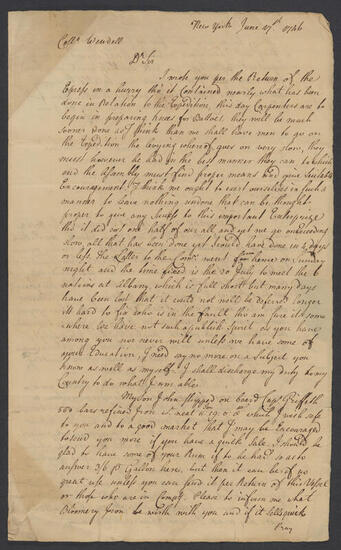 New York June 17th 1746
Collo Wendell
Dr Sir
I wrote you per the Return of the
Express in a hurry tho it Contained nearly what has been
done in Relation to the Expedition, this day Carpenters are to
begin in preparing for they will be much
sooner done as I think than we shall have men to go on
the Expedition the levying whereof goes on very slow, they
must however be had in the best manner they can to which
end the Assembly must find proper means and give suitable
Encouragement, I think we ought to exert ourselves in such a
manner to leave nothing undone that can be thought
proper to give any Success to this important Enterprize
tho it did cost one half of our all and yet we go on Exceeding
slow, all that has been done yet I could have done in 4 days
or less. The Letter to the went from hence on Sunday
night and the time fixed is the 20 July to meet the 6
nations at Albany, which is full short but many days
have been lost that it could not well be deferred longer
its hard to fix who is in the fault this am sure its some
where We have not such a publick Spirit as you have
among you nor never will unless we have some of
your Education, I need say no more on a Subject you
know as well as myself. I shall discharge my duty to my
Country to do what I am able.
My Son John shipped on board Capt Griffeth
500 bars refined Iron which I wish safe
to you and to a good market that I may be Encouraged
to send you more if you have a quick Sale, I should be
glad to have some of your Rum if to be had so as to
answer 3/6 P Gallon here, but then it can be of no
great use unless you can send it per Return of this Vessel
or those who are in Comp. Please to inform me what
Bloomery Iron be worth with you and if it sells quick
Pray